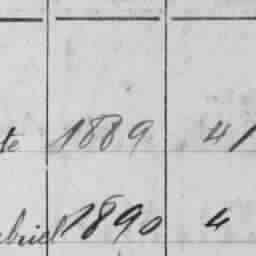 te 1889 41
abriel 1890 4